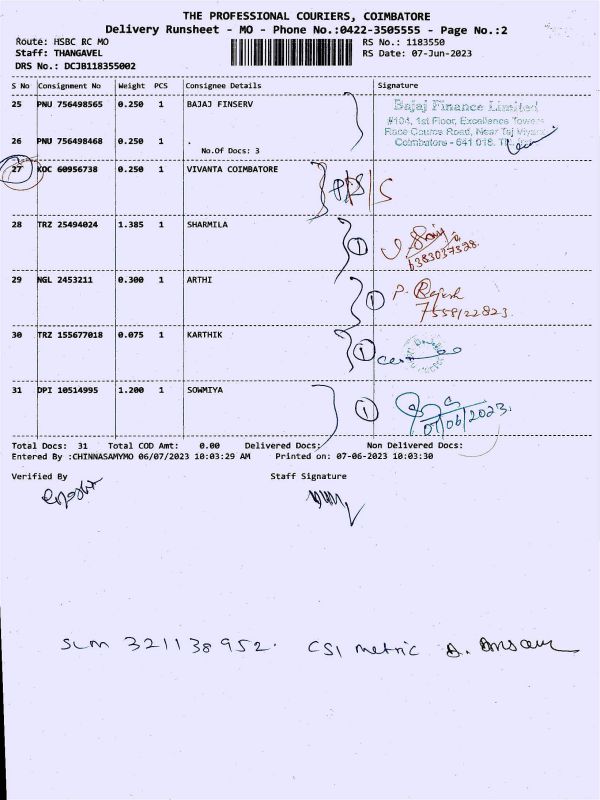 THE PROFESSIONAL COURIERS, COIMBATORE
Delivery Runsheet - MO - Phone No.:0422-3505555 - Page No.:2
Route: HSBC RC MO RS No.: 1183550
Staff: THANGAVEL RS Date: 07-Jun-2023
DRS No.: DCJB118355002
S No Consignment No Weight PCS Consignee Details Signature
25 PNU 756498565 0.250 1 BAJAJ FINSERV
Bajaj Finance Limited
#104, 1st Floor, Excellence Towers
Race Course Road, Near Taj Vivanta
Coimbatore - 641 018.
26 PNU 756498468 0.250 1 .
No.Of Docs: 3
27 KOC 60956738 0.250 1 VIVANTA COIMBATORE
28 TRZ 25494024 1.385 1 SHARMILA 1
6383037328
29 NGL 2453211 0.300 1 ARTHI 1 P. Rajesh
7558122823
30 TRZ 155677018 0.075 1 KARTHIK 1
31 DPI 10514995 1.200 1 SOWMIYA 1
07/06/2023.
Total Docs: 31 Total COD Amt: 0.00 Delivered Docs: Non Delivered Docs:
Entered By :CHINNASAMYMO 06/07/2023 10:03:29 AM Printed on: 07-06-2023 10:03:30
Verified By Staff Signature
SLM 321138952. CSI metric A. Ansari